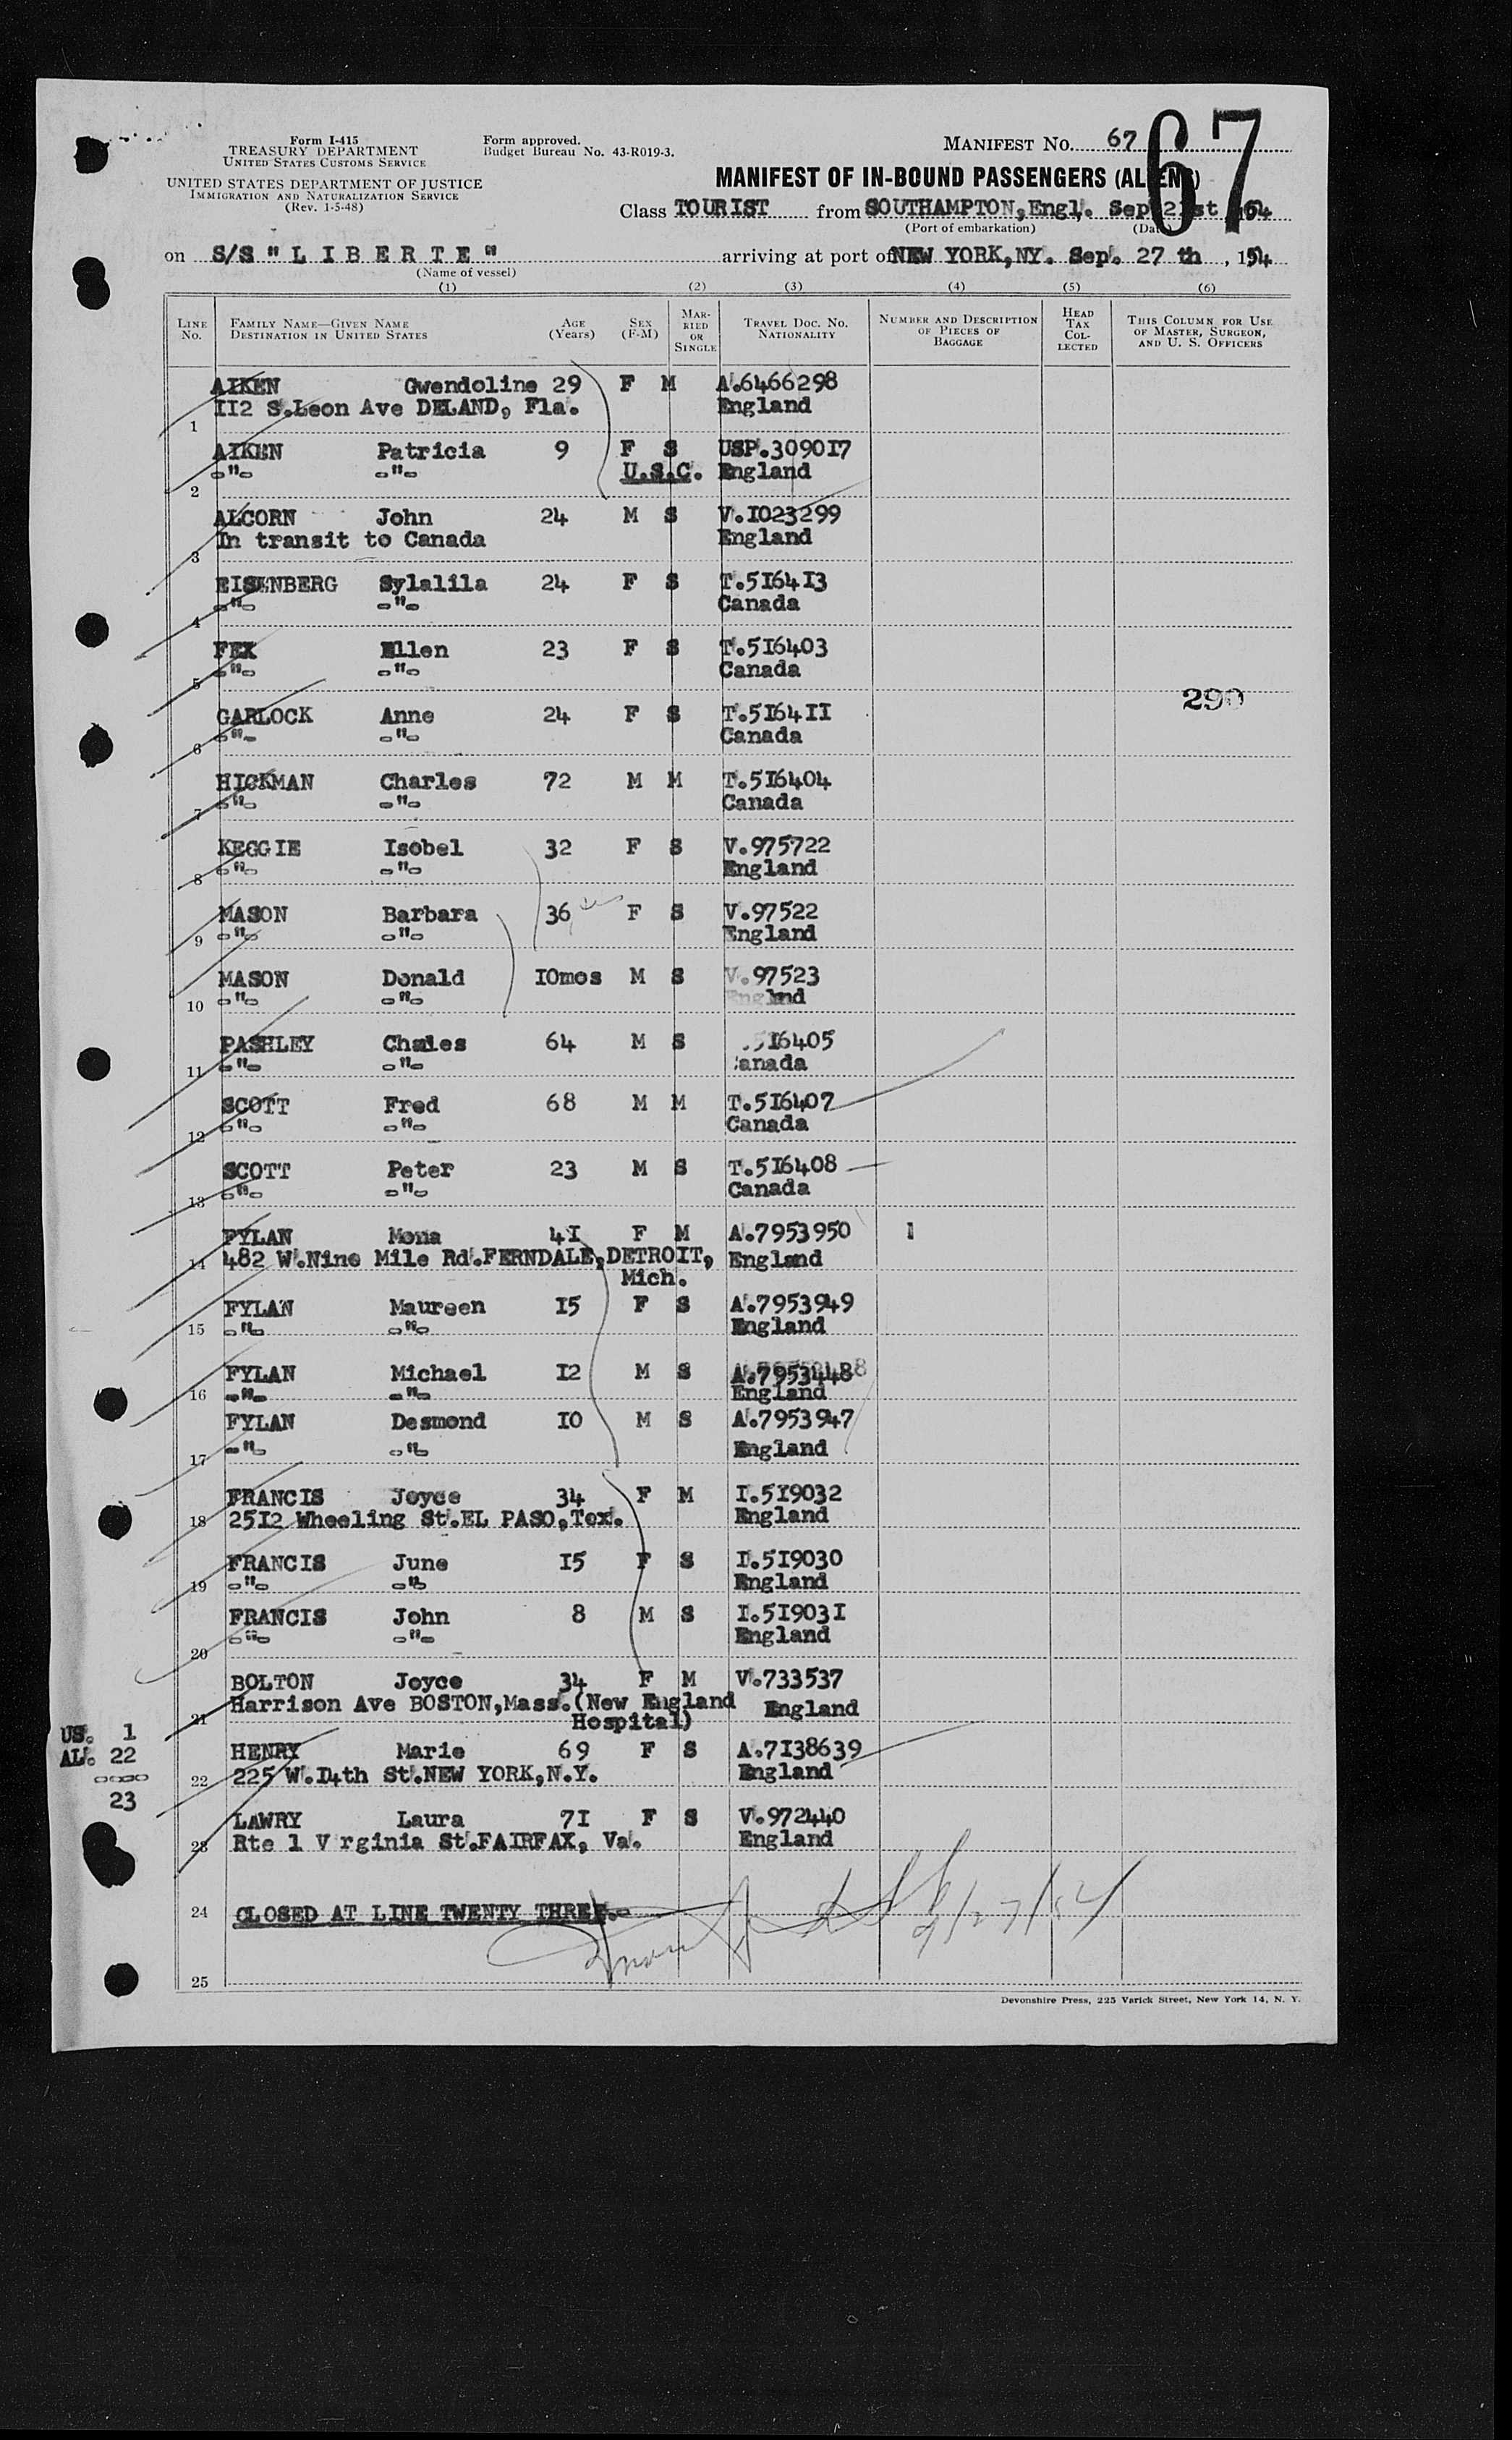 67
Form I-415
TREASURY DEPARTMENT
UNITED STATES CUSTOMS SERVICE
UNITED STATES DEPARTMENT OF JUSTICE
IMMIGRATION AND NATURALIZATION SERVICE
(Rev. 1-5-48)
Form approved.
Budget Bureau No. 43-R019-3.
MANIFEST No. 67
MANIFEST OF IN-BOUND PASSENGERS (ALIENS)
Class TOURIST from SOUTHAMPTON, Engl. Sep 21st, 1954
(Port of embarkation) (Date)
on S/S "LIBERTE" arriving at port of NEW YORK, NY. Sep. 27 th, 1954
(Name of vessel)
(1) (2) (3) (4) (5) (6)
LINE No. FAMILY NAME—GIVEN NAME DESTINATION IN UNITED STATES AGE (Years) SEX (F-M) MARRIED OR SINGLE TRAVEL DOC. NO. NATIONALITY NUMBER AND DESCRIPTION OF PIECES OF BAGGAGE HEAD TAX COLLECTED THIS COLUMN FOR USE OF MASTER, SURGEON, AND U. S. OFFICERS
AIKEN Gwendoline 29 F M A.6466298
1 112 S.Leon Ave DELAND, Fla. England
AIKEN Patricia 9 F S USP.309017
2 -"- -"- U.S.C. England
ALCORN John 24 M S V.1023299
3 In transit to Canada England
EISENBERG Sylalila 24 F S T.516413
4 -"- -"- Canada
FEX Ellen 23 F S T.516403
5 -"- -"- Canada
290
GARLOCK Anne 24 F S T.516411
6 -"- -"- Canada
HICKMAN Charles 72 M M T.516404
7 -"- -"- Canada
KEGGIE Isobel 32 F S V.975722
8 -"- -"- England
MASON Barbara 36 F S V.97522
9 -"- -"- England
MASON Donald 10mos M S V.97523
10 -"- -"- England
PASHLEY Chales 64 M S .516405
11 -"- -"- anada
SCOTT Fred 68 M M T.516407
12 -"- -"- Canada
SCOTT Peter 23 M S T.516408
13 -"- -"- Canada
FYLAN Mona 41 F M A.7953950 1
14 482 W.Nine Mile Rd.FERNDALE,DETROIT, England
Mich.
FYLAN Maureen 15 F S A.7953949
15 -"- -"- England
FYLAN Michael 12 M S
16 -"- -"- England
FYLAN Desmond 10 M S A.7953947
17 -"- -"- England
FRANCIS Joyce 34 F M I.519032
18 2512 Wheeling St.EL PASO,Tex. England
FRANCIS June 15 F S I.519030
19 -"- -"- England
FRANCIS John 8 M S I.519031
20 -"- -"- England
BOLTON Joyce 34 F M V.733537
21 Harrison Ave BOSTON,Mass.(New England England
Hospital)
US. 1
AL. 22
----
23
HENRY Marie 69 F S A.7138639
22 225 W.14th St.NEW YORK,N.Y. England
LAWRY Laura 71 F S V.972440
23 Rte 1 V rginia St.FAIRFAX, Va. England
24 CLOSED AT LINE TWENTY THREE.-
9/27/54
25
Devonshire Press, 225 Varick Street, New York 14, N. Y.